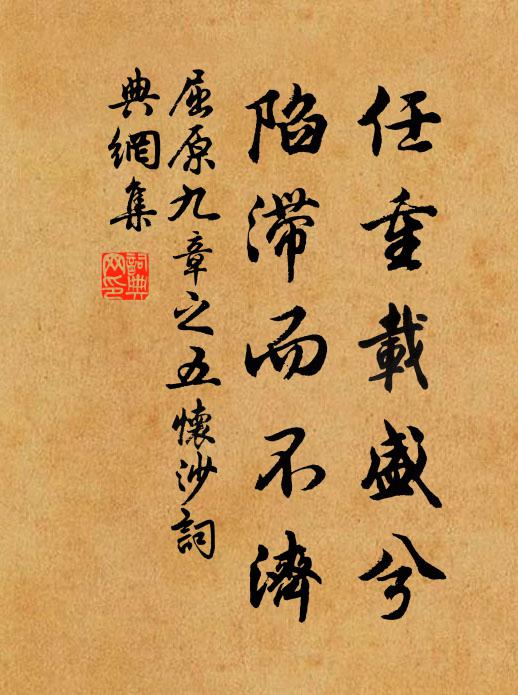 任重載盛兮
陷滯而不濟
屈原九章之五懷沙詞
典網集
詞典
网印